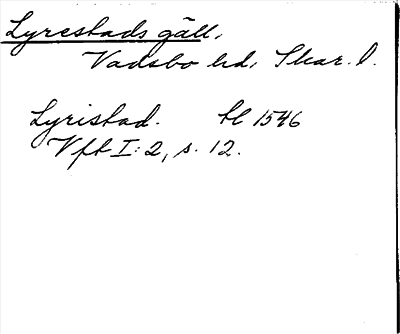 Lyrestads gäll,
Vadsbo hd, Skar. l.
Lyristad. tl 1546
Vft I:2, s. 12.